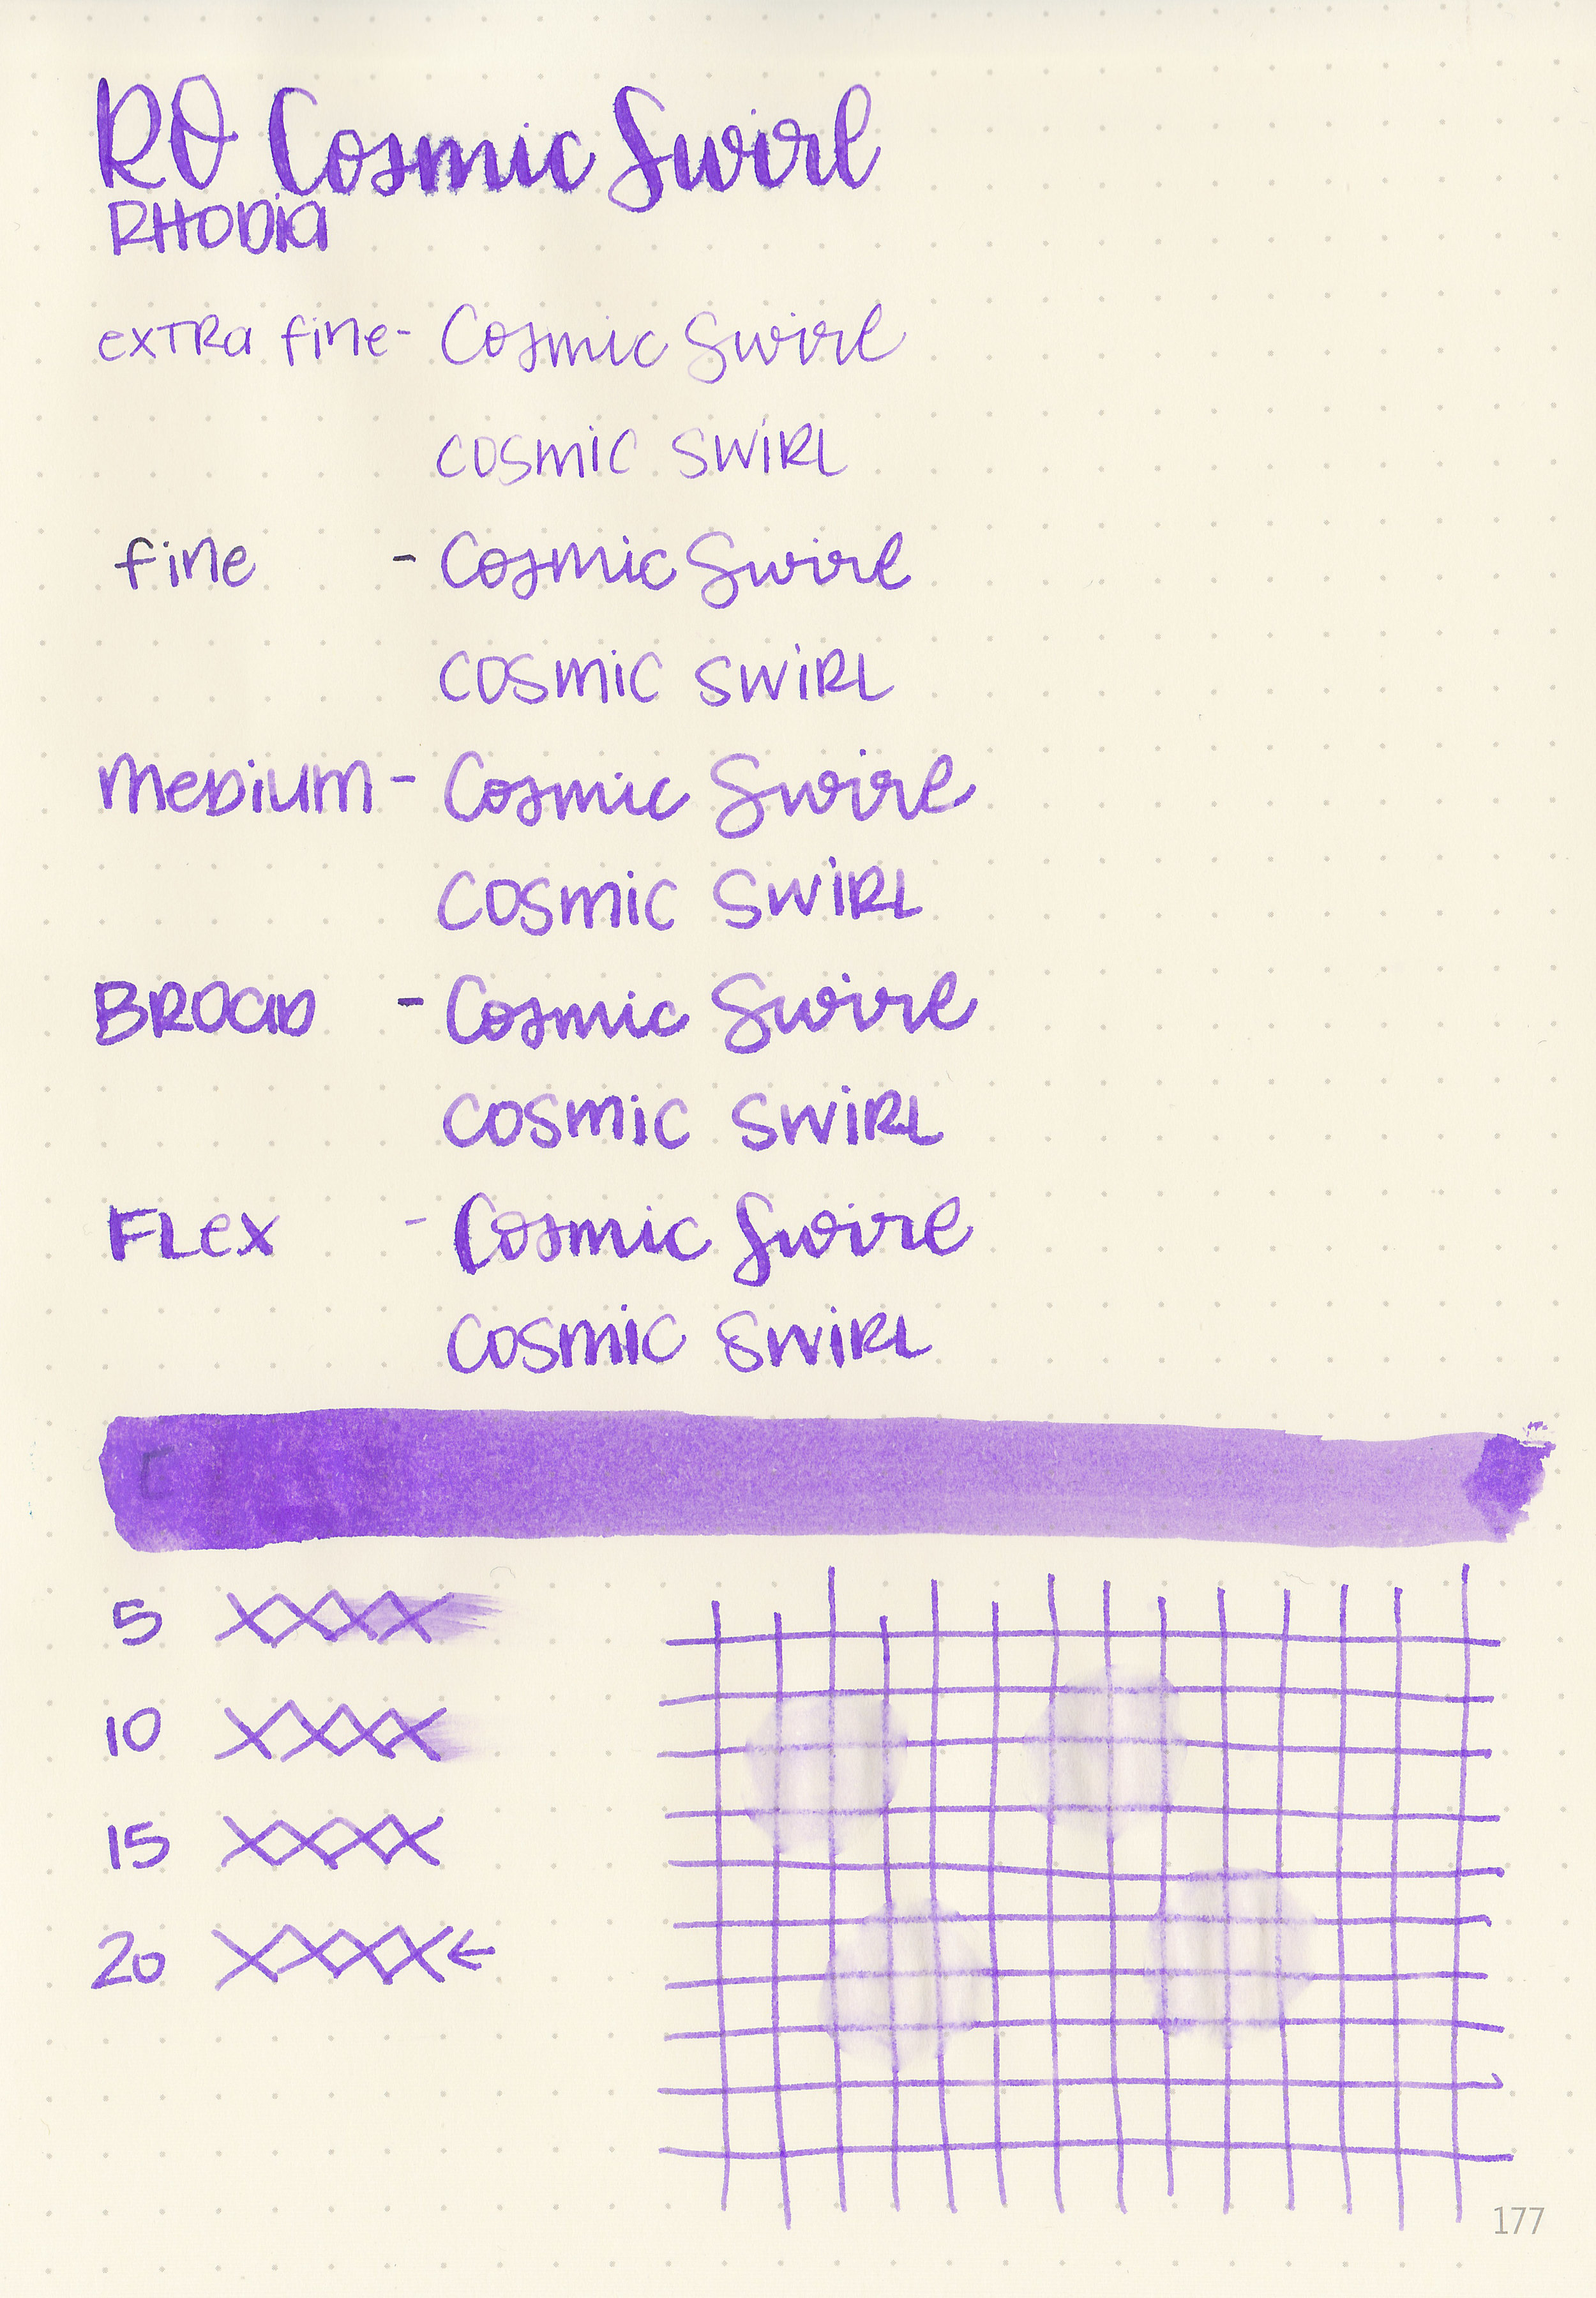 RO Cosmic Swirl
RHODia
exTRa fine- Cosmic Swirl
COSMiC SWiRL
fine - Cosmic Swirl
COSMiC SWiRL
MeDiUM - Cosmic Swirl
COSMiC SWiRL
BROaD - Cosmic Swirl
COSMiC SWiRL
FLex - Cosmic Swirl
COSMiC SWiRL
5 XXXX
10 XXXX
15 XXXX
20 XXXX←
177